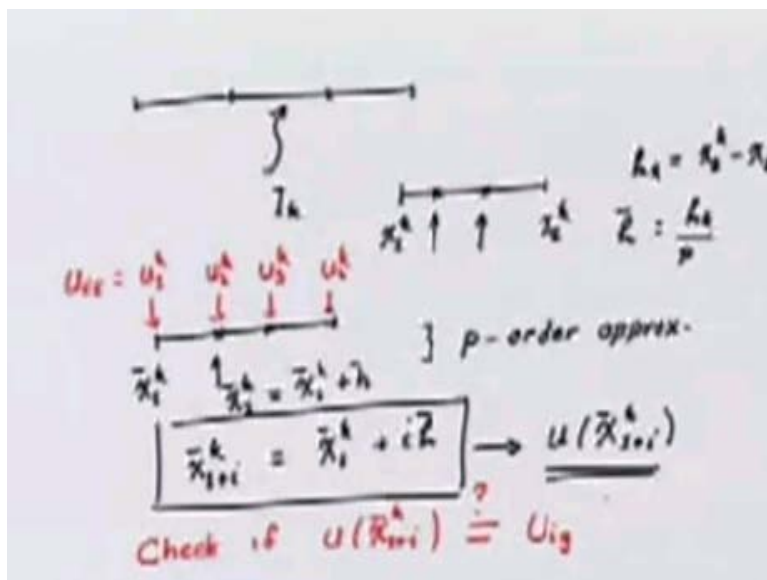 I_k
h_k = x_2^k - x
x_1^k x_2^k h̄ = h_k / p
u_1^k u_2^k u_3^k u_4^k
} p-order approx.
x̄_1^k x̄_2^k = x̄_1^k + h̄
x̄_{1+i}^k = x̄_1^k + i h̄ → u(x̄_{1+i}^k)
Check if u(x̄_{1+i}^k) ?= U_ig